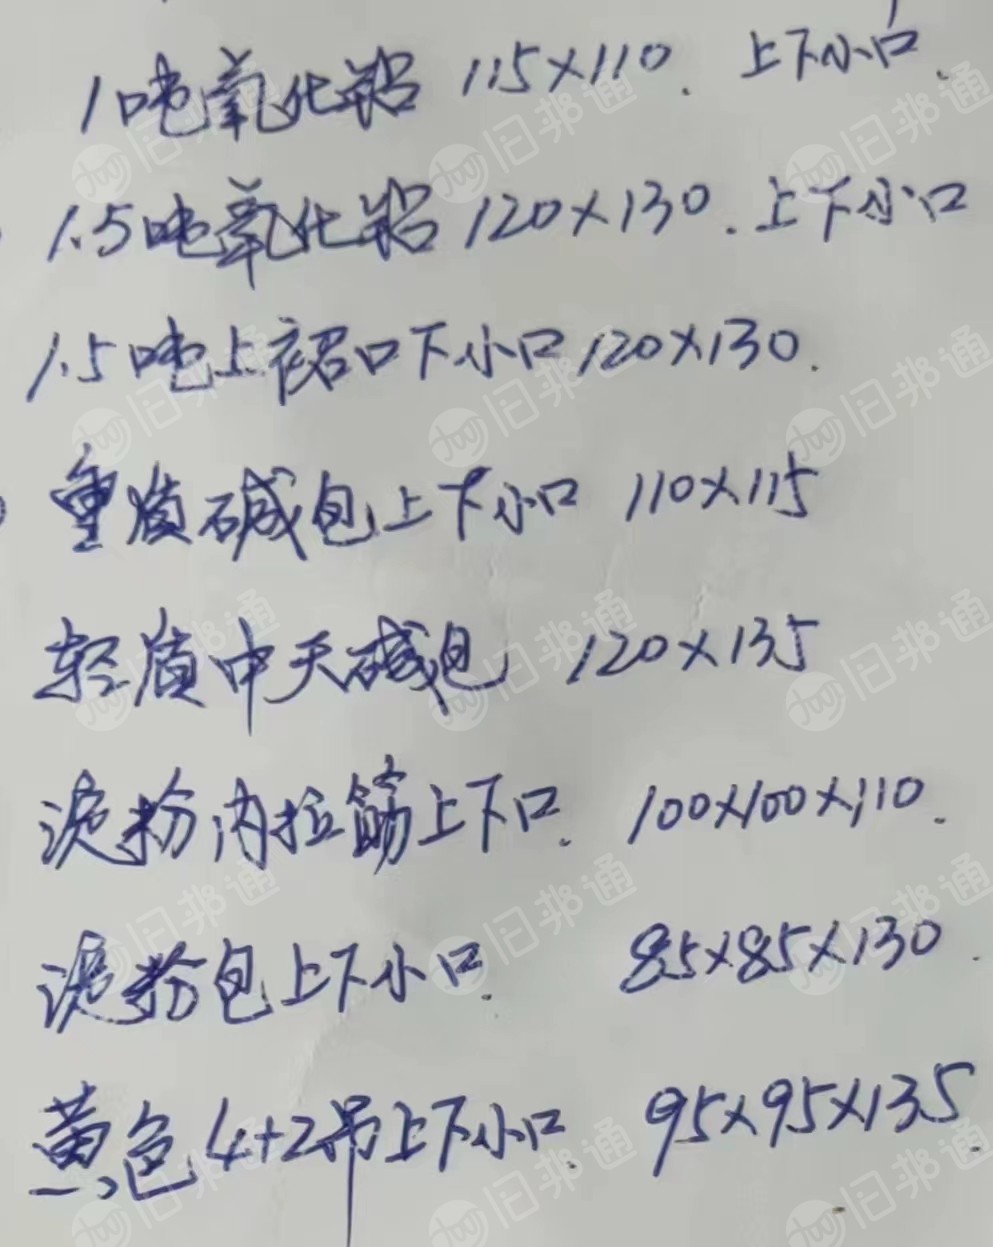 1吨氧化铝 115×110. 上下小口.
1.5吨氧化铝 120×130. 上下小口
1.5吨上裙口下小口 120×130.
重质碱包上下小口 110×115
轻质中天碱包 120×135
淀粉内拉筋上下口. 100×100×110.
淀粉包上下小口. 85×85×130.
黄色4+2吊上下小口. 95×95×135.
旧邦通